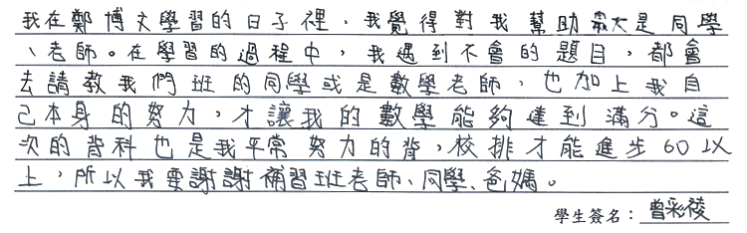 我在鄭博文學習的日子裡，我覺得對我幫助最大是同學
、老師。在學習的過程中，我遇到不會的題目，都會
去請教我們班的同學或是數學老師，也加上我自
己本身的努力，才讓我的數學能夠達到滿分。這
次的背科也是我平常努力的背，校排才能進步60以
上，所以我要謝謝補習班老師、同學、爸媽。
學生簽名：曾彩稜